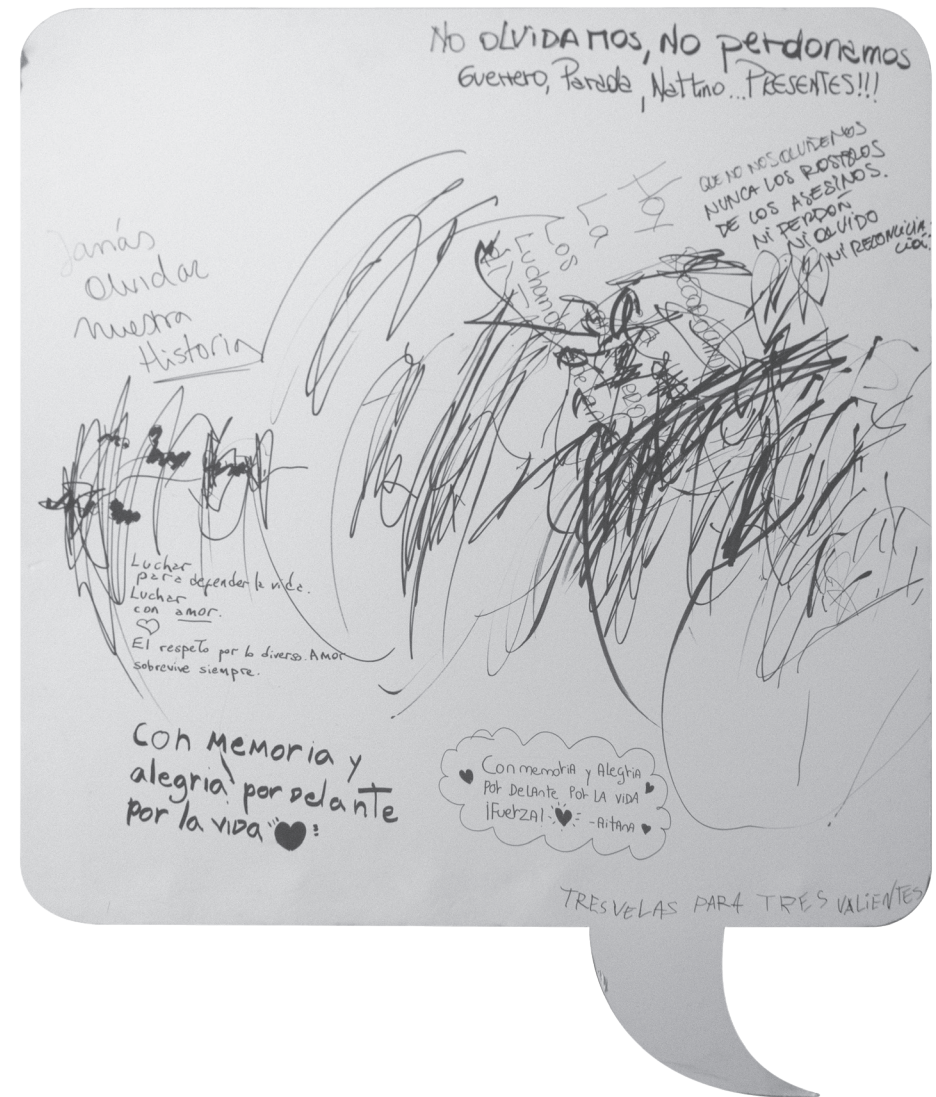 No OLVIDAMOS, No perdonamos
Guerrero, Parada, Nattino... PRESENTES!!!
QUE NO NOS OLVIDEMOS
NUNCA LOS ROSTROS
DE LOS ASESINOS.
NI PERDÓN
NI OLVIDO
NI RECONCILIA
CIÓN
Jamás
Olvidar
nuestra
Historia
Por
La
Los
Luchando
Luchar
para defender la vida.
Luchar
con amor.
El respeto por lo diverso. Amor
sobrevive siempre.
Con Memoria y
alegria por delante
por la vida
Con memoria y Alegria
Por Delante Por LA VIDA
¡Fuerza! -AitAnA
TRES VELAS PARA TRES VALIENTES